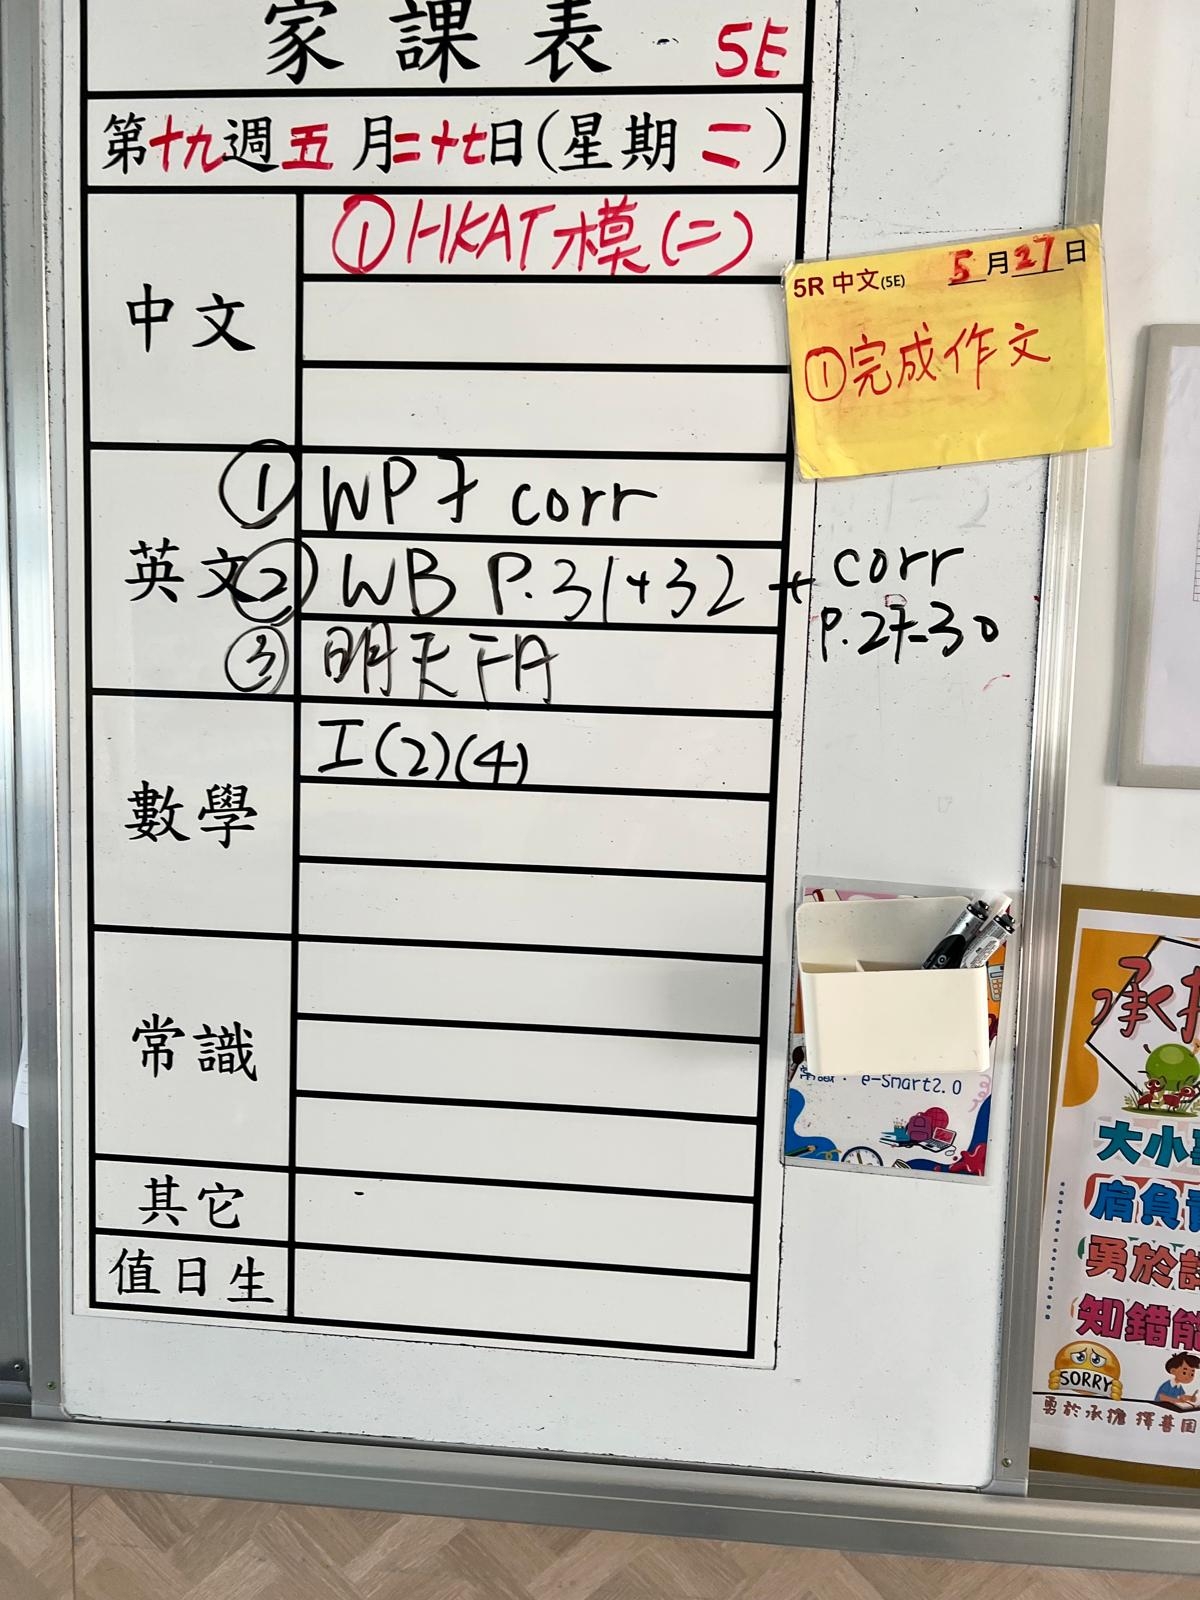 家課表 5E
第十九週五月二十七日(星期二)
中文
①HKAT模(二)
5R 中文(5E) 5月27日
①完成作文
英文
①WP7 corr
②WB P.31+32 + corr P.27-30
③明天FA
數學
I(2)(4)
常識
其它
值日生
常識: e-Smart2.0
大小
肩負
勇於
知錯能
SORRY
勇於承擔 擇善固